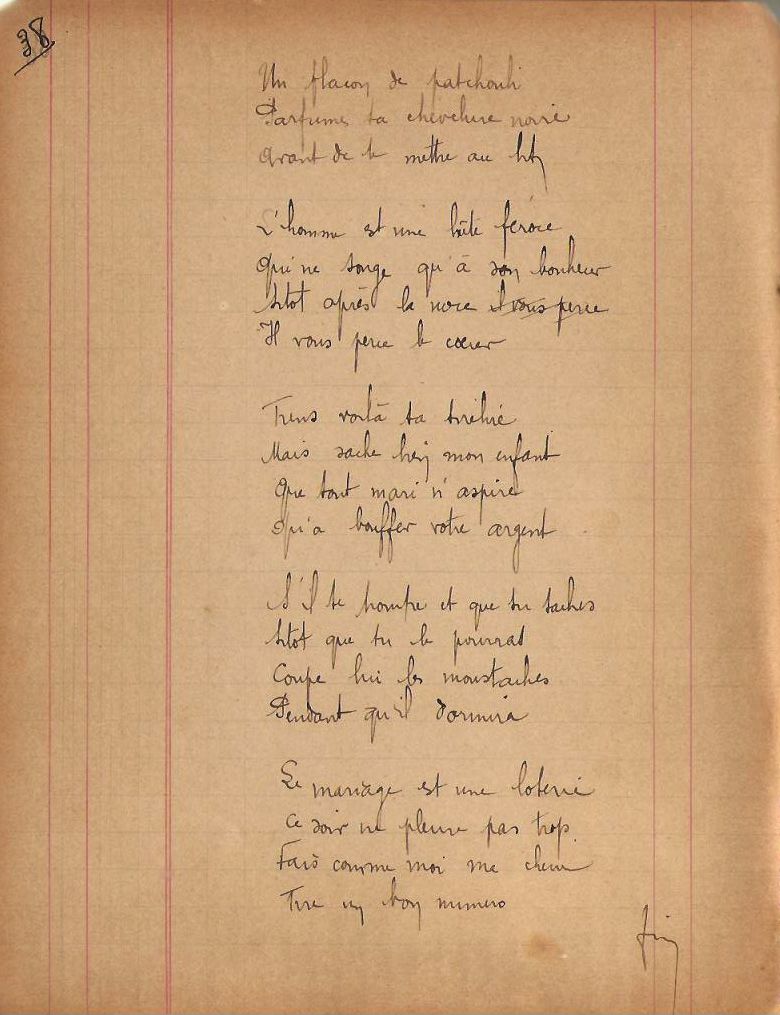 38
Un flacon de patchouli
Parfumes ta chevelure noire
Avant de te mettre au lit
L'homme est une bête féroce
Qui ne songe qu'à son bonheur
Sitot après la noce il vous perce
Il vous perce le cœur
Tiens voilà ta tirelire
Mais sache bien mon enfant
Que tout mari n'aspire
Qu'a bouffer votre argent
S'il te trompe et que tu saches
Sitot que tu le pourras
Coupe lui les moustaches
Pendant qu'il dormira
Le mariage est une loterie
Ce soir ne pleure pas trop.
Fais comme moi ma cherie
Tire un bon numero
fin